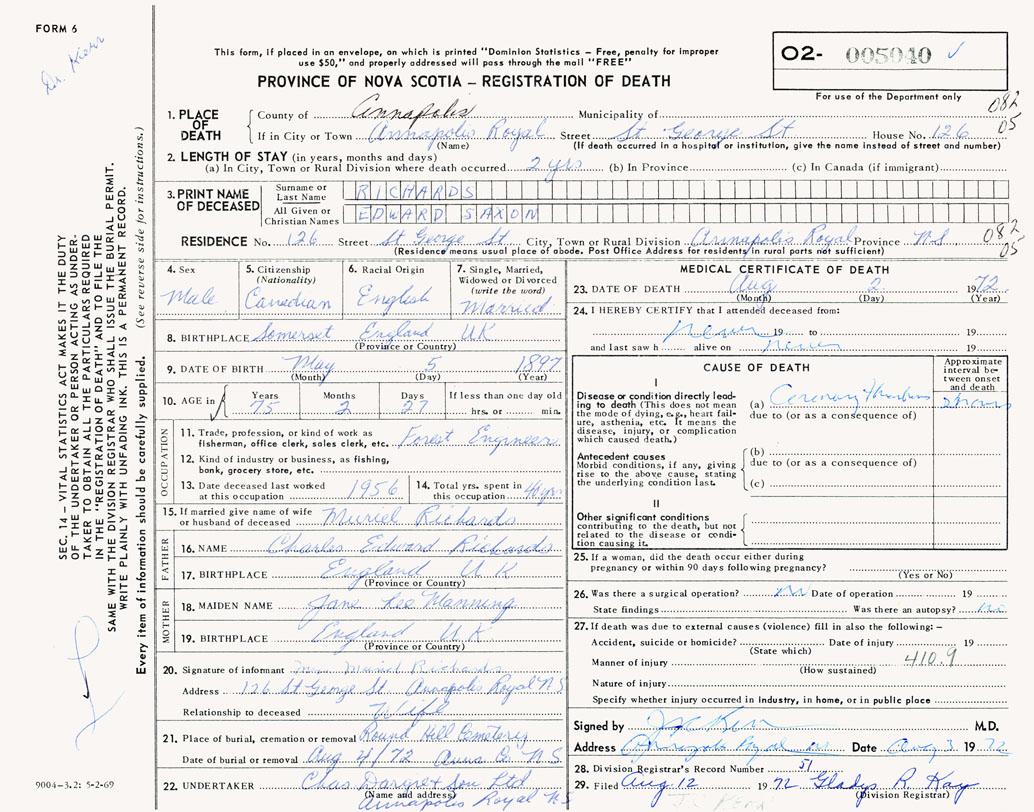 FORM 6
Dr. Kerr
This form, if placed in an envelope, on which is printed "Dominion Statistics – Free, penalty for improper
use $50," and properly addressed will pass through the mail "FREE"
PROVINCE OF NOVA SCOTIA – REGISTRATION OF DEATH
02- 005040 ✓
For use of the Department only
082
05
1. PLACE OF DEATH
County of Annapolis Municipality of
If in City or Town Annapolis Royal Street St George St House No. 126
(Name) (If death occurred in a hospital or institution, give the name instead of street and number)
2. LENGTH OF STAY (in years, months and days)
(a) In City, Town or Rural Division where death occurred 2 yrs (b) In Province (c) In Canada (if immigrant)
3. PRINT NAME OF DECEASED
Surname or Last Name RICHARDS
All Given or Christian Names EDWARD SAXON
RESIDENCE No. 126 Street St George St City, Town or Rural Division Annapolis Royal Province N S
(Residence means usual place of abode. Post Office Address for residents in rural parts not sufficient)
082
05
4. Sex
Male
5. Citizenship
(Nationality)
Canadian
6. Racial Origin
English
7. Single, Married,
Widowed or Divorced
(write the word)
Married
8. BIRTHPLACE Somerset England UK
(Province or Country)
9. DATE OF BIRTH May 5 1897
(Month) (Day) (Year)
10. AGE in Years Months Days If less than one day old
75 2 27 hrs. or min.
OCCUPATION
11. Trade, profession, or kind of work as
fisherman, office clerk, sales clerk, etc. Forest Engineer
12. Kind of industry or business, as fishing,
bank, grocery store, etc.
13. Date deceased last worked
at this occupation 1956
14. Total yrs. spent in
this occupation 40 yrs
15. If married give name of wife
or husband of deceased Muriel Richards
FATHER
16. NAME Charles Edward Richards
17. BIRTHPLACE England U K
(Province or Country)
MOTHER
18. MAIDEN NAME Jane Lee Manning
19. BIRTHPLACE England U K
(Province or Country)
20. Signature of informant Mrs Muriel Richards
Address 126 St George St Annapolis Royal N S
Relationship to deceased Wife
21. Place of burial, cremation or removal Round Hill Cemetery
Date of burial or removal Aug 4/72 Anna Co N S
22. UNDERTAKER Chas Dargie & Son Ltd
(Name and address)
Annapolis Royal N S
MEDICAL CERTIFICATE OF DEATH
23. DATE OF DEATH Aug 2 1972
(Month) (Day) (Year)
24. I HEREBY CERTIFY that I attended deceased from:
never 19 to 19
and last saw h alive on never 19
CAUSE OF DEATH
Approximate interval between onset and death
I
Disease or condition directly leading to death (This does not mean the mode of dying, e.g., heart failure, asthenia, etc. It means the disease, injury, or complication which caused death.)
(a) Coronary Thrombosis 2 hours
due to (or as a consequence of)
Antecedent causes
Morbid conditions, if any, giving rise to the above cause, stating the underlying condition last.
(b)
due to (or as a consequence of)
(c)
II
Other significant conditions
contributing to the death, but not related to the disease or condition causing it.
25. If a woman, did the death occur either during
pregnancy or within 90 days following pregnancy?
(Yes or No)
26. Was there a surgical operation? no Date of operation 19
State findings Was there an autopsy? no
27. If death was due to external causes (violence) fill in also the following: –
Accident, suicide or homicide? Date of injury 19
(State which)
Manner of injury 410.9
(How sustained)
Nature of injury
Specify whether injury occurred in industry, in home, or in public place
Signed by Kerr M.D.
Address Annapolis Royal NS Date Aug 3 1972
28. Division Registrar's Record Number 51
29. Filed Aug 12 1972 Gladys R. Kay
(Division Registrar)
SEC. 14 – VITAL STATISTICS ACT MAKES IT THE DUTY
OF THE UNDERTAKER OR PERSON ACTING AS UNDER-
TAKER TO OBTAIN ALL THE PARTICULARS REQUIRED
IN THE "REGISTRATION OF DEATH" AND TO FILE THE
SAME WITH THE DIVISION REGISTRAR WHO SHALL ISSUE THE BURIAL PERMIT.
WRITE PLAINLY WITH UNFADING INK. THIS IS A PERMANENT RECORD.
Every item of information should be carefully supplied. (See reverse side for instructions.)
9004-3.2: 5-2-69